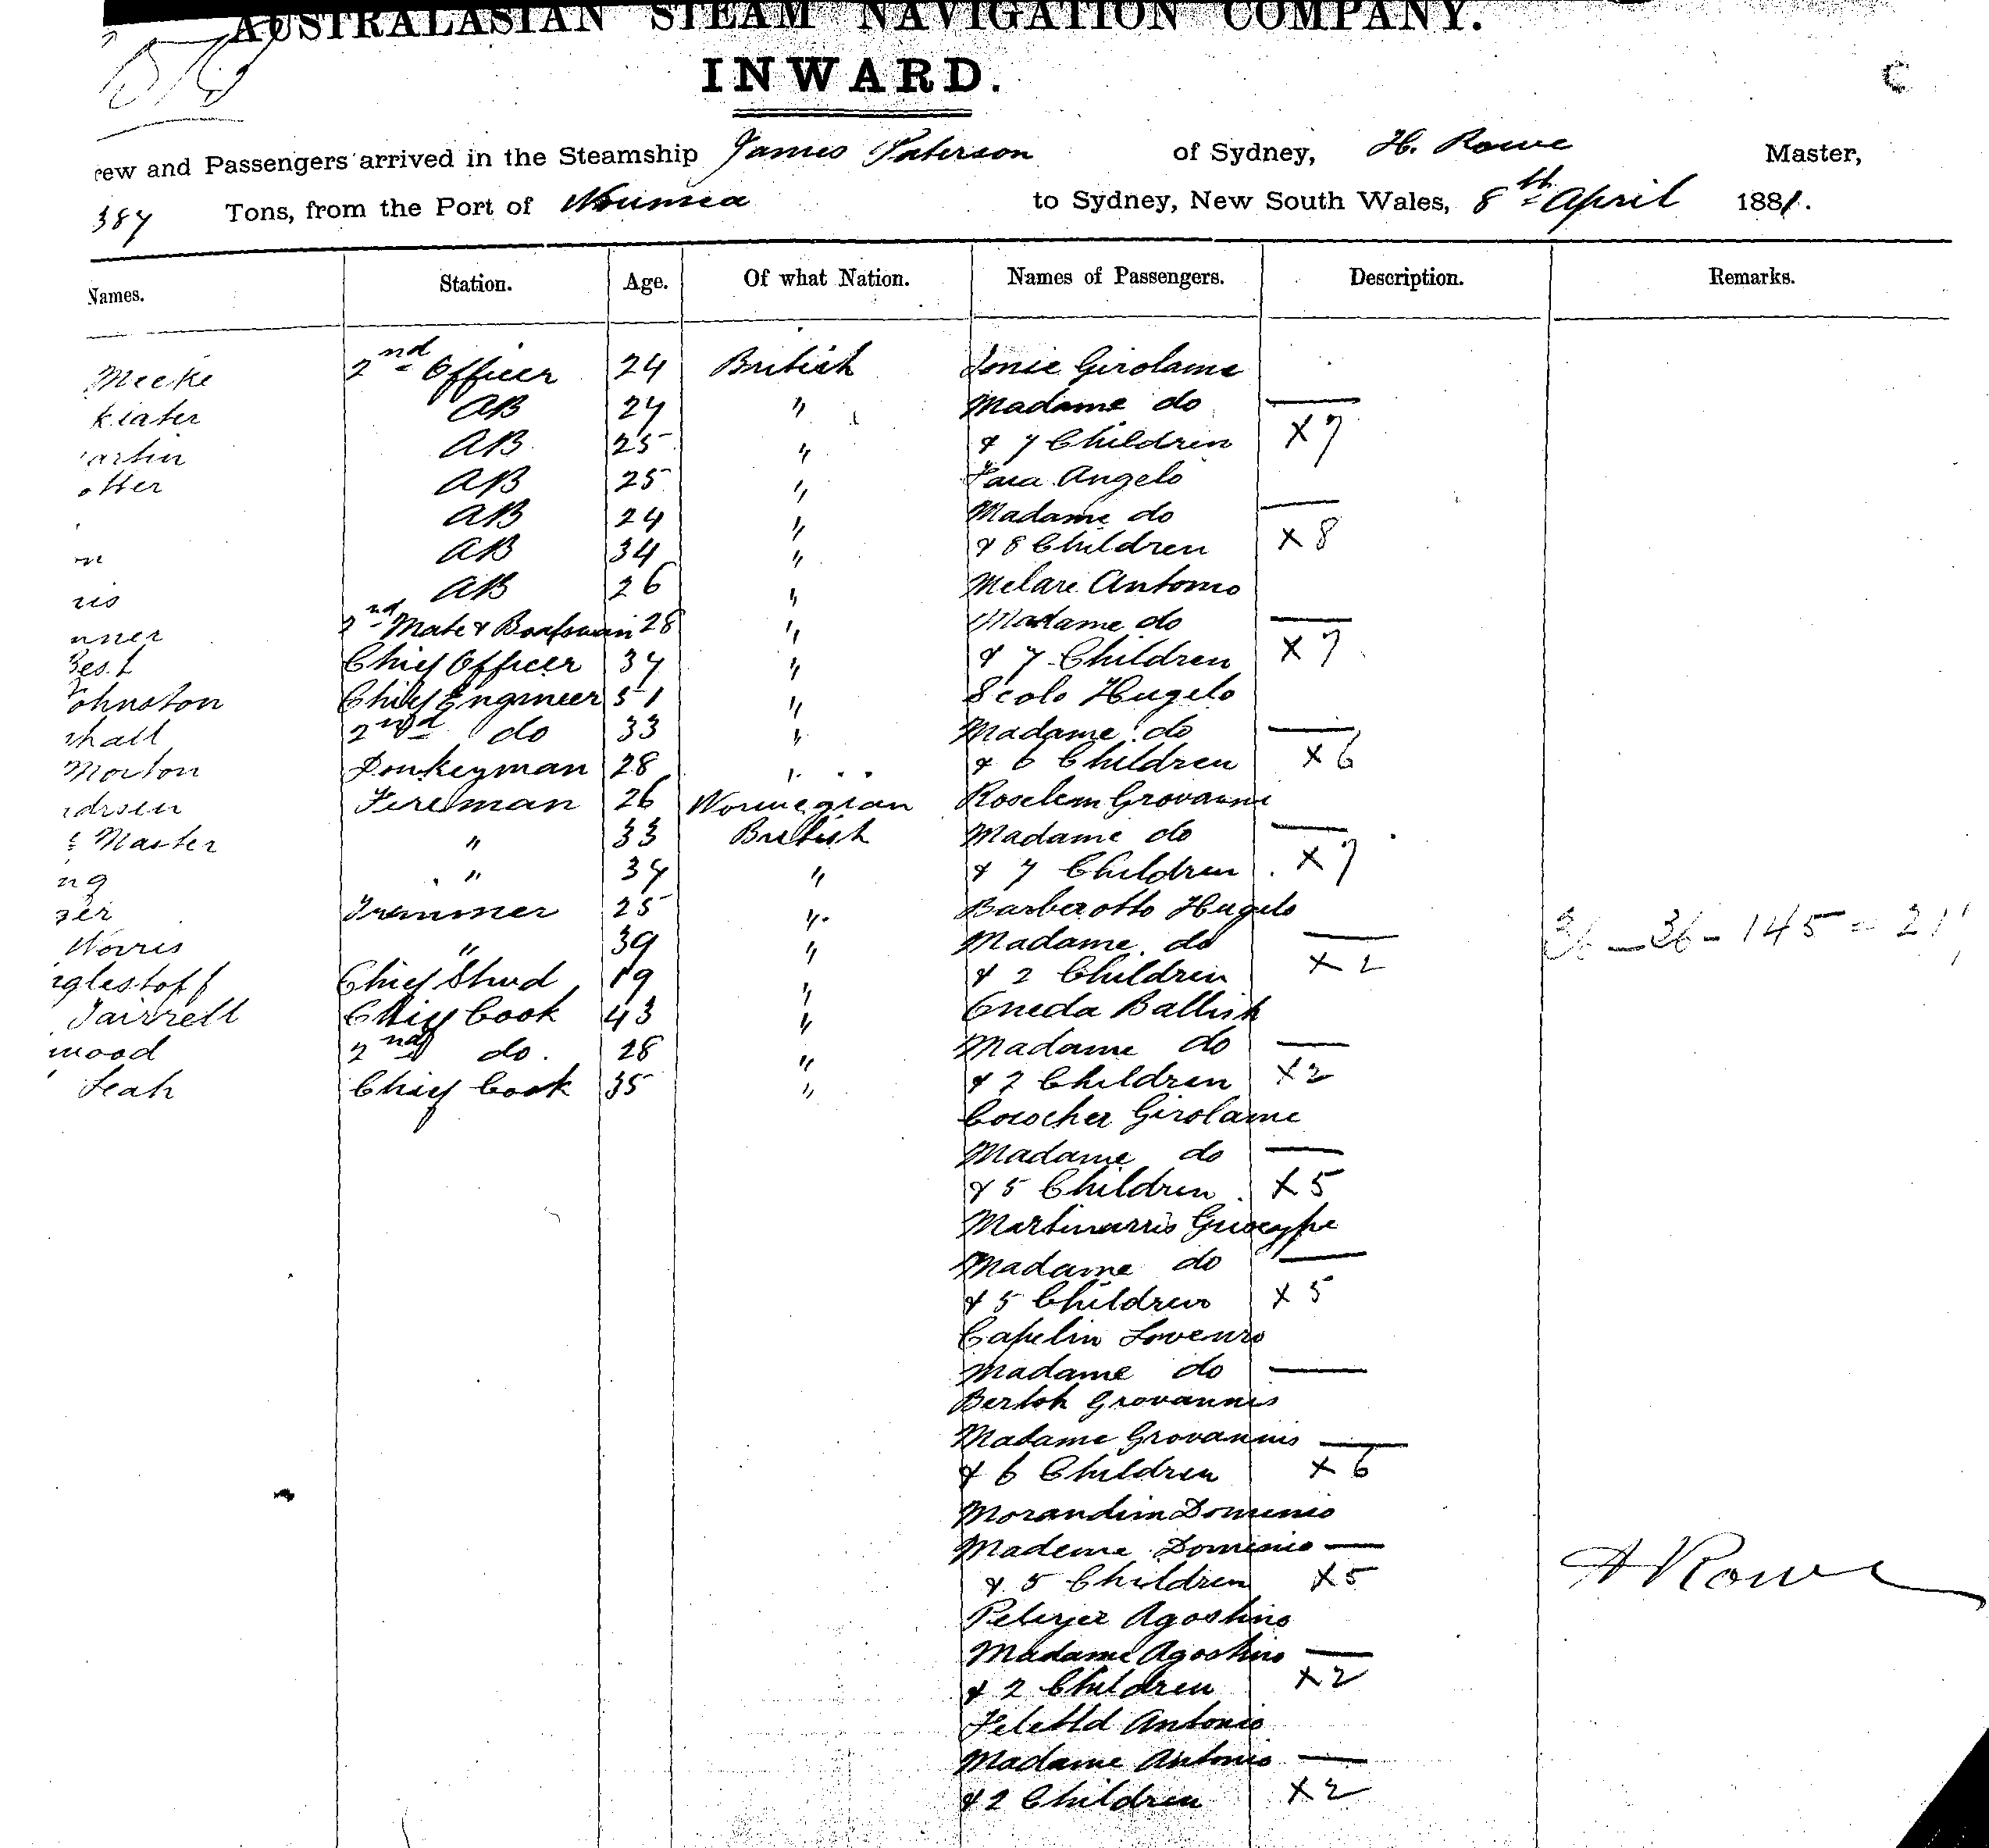 AUSTRALASIAN STEAM NAVIGATION COMPANY.
INWARD.
rew and Passengers arrived in the Steamship James Paterson of Sydney, H. Rowe Master,
387 Tons, from the Port of Noumea to Sydney, New South Wales, 8th April 1881.
Names. Station. Age. Of what Nation. Names of Passengers. Description. Remarks.
Meeke 2nd Officer 24 British Girolame
AB 24 " Madame do
artin AB 25 " & 7 Children X 7
otter AB 25 " Angelo
AB 24 " Madame do
AB 34 " & 8 Children X 8
ris AB 26 " Melare Antonio
nner 2nd Mate & Boatswain 28 " Madame do
Best Chief Officer 37 " & 7 Children X 7
Johnston Chief Engineer 51 " Scolo Hugelo
shall 2nd do 33 " Madame do
Morton Donkeyman 28 " & 6 Children X 6
drsen Fireman 26 Norwegian Roselem Grovanni
Master " 33 British Madame do
ng " 34 " & 7 Children X 7
ger Trimmer 25 " Barberotto Hugelo
Norris " 39 " Madame do
glestoff Chief Stwd 19 " & 2 Children X 2
36 - 36 - 145 = 217
Jairrett Chief Cook 43 " Eneda Battish
wood 2nd do. 28 " Madame do
Leah Chief Cook 35 " & 2 Children X 2
Cococher Girolame
Madame do
& 5 Children X 5
Martinarris Guiseppe
Madame do
& 5 Children X 5
Capelin Lovenzo
Madame do
Bertoh Grovannis
Madame Grovannis
& 6 Children X 6
Morandim Dominio
Madame Dominio
& 5 Children X 5
Agostino
Madame Agostino
& 2 Children X 2
Antonio
Madame Antonio
& 2 Children X 2
H Rowe